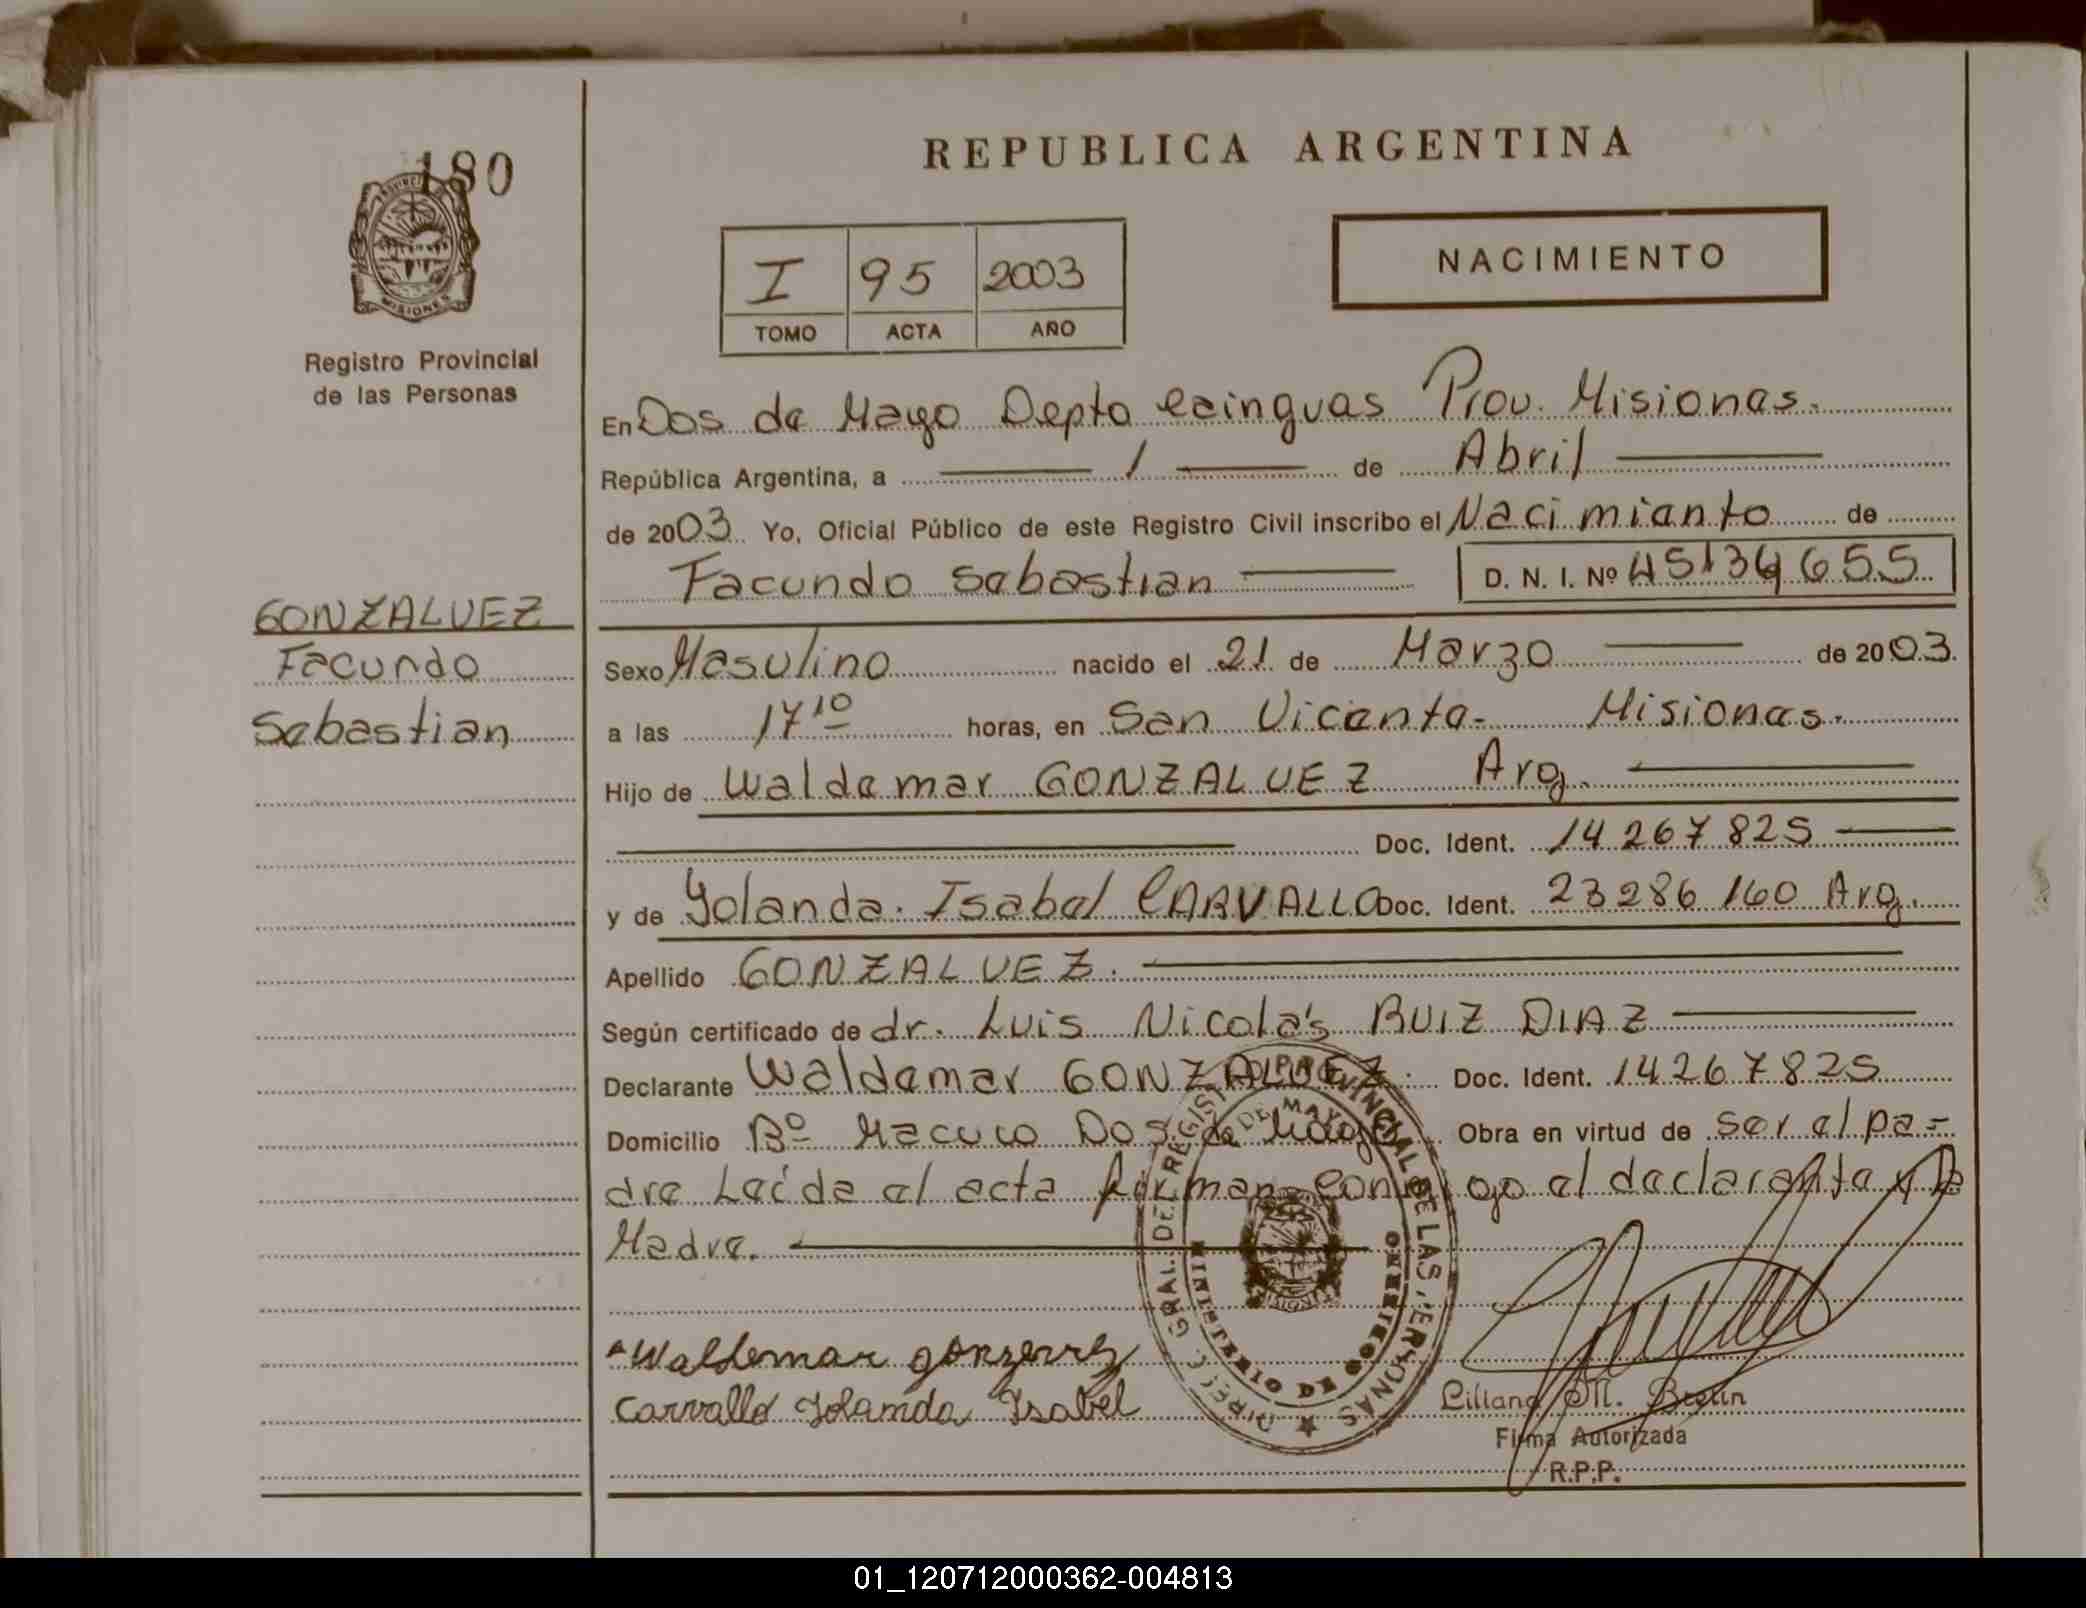 180
PROVINCIA DE
MISIONES
Registro Provincial
de las Personas
REPUBLICA ARGENTINA
I 95 2003
TOMO ACTA AÑO
NACIMIENTO
En Dos de Mayo Depto Cainguas Prov. Misiones.
República Argentina, a 1 de Abril
de 2003. Yo, Oficial Público de este Registro Civil inscribo el Nacimiento de
Facundo Sebastian D. N. I. Nº 45134655
GONZALVEZ
Facundo
Sebastian
Sexo Masulino nacido el 21 de Marzo de 2003.
a las 17 10 horas, en San Vicente - Misiones.
Hijo de Waldemar GONZALVEZ Arg.
Doc. Ident. 14 267 825
y de Yolanda. Isabel CARVALLO Doc. Ident. 23 286 160 Arg.
Apellido GONZALVEZ.
Según certificado de dr. Luis Nicolás RUIZ DIAZ
Declarante Waldemar GONZALVEZ. Doc. Ident. 14267825
Domicilio Bº Macuco Dos de Mayo. Obra en virtud de ser el pa-
dre Leída el acta firman conmigo el declarante y la
Madre.
Waldemar
Carvallo Yolanda Isabel
DIREC. GRAL. DEL REGISTRO PROVINCIAL DE LAS PERSONAS
DOS DE MAYO
MINISTERIO DE GOBIERNO
Liliana M.
Firma Autorizada
R.P.P.
01_120712000362-004813